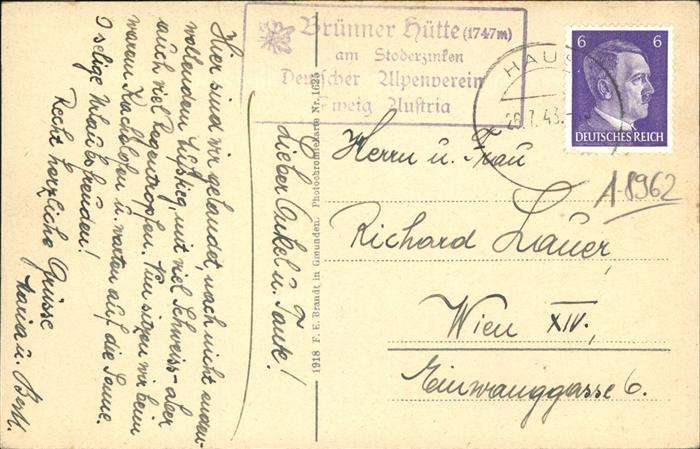 Brünner Hütte (1747m)
am Stoderzinken
Deutscher Alpenverein
Zweig Austria
HAUS
26.7.43
6 6
DEUTSCHES REICH
1-8962
Lieber Onkel u. Tante!
Hier sind wir gelandet, nach nicht enden-
wollendem Aufstieg, mit viel Schweiss- aber
auch viel Regentropfen. Nun sitzen wir beim
warmen Kachelofen u. warten auf die Sonne.
O selige Urlaubsfreuden!
Recht herzliche Grüsse
Maria u.
Herrn u. Frau
Richard Lauer,
Wien XIV.,
Einwanggasse 6.
1918 F. E. Brandt in Gmunden. Photochromiekarte Nr. 1625